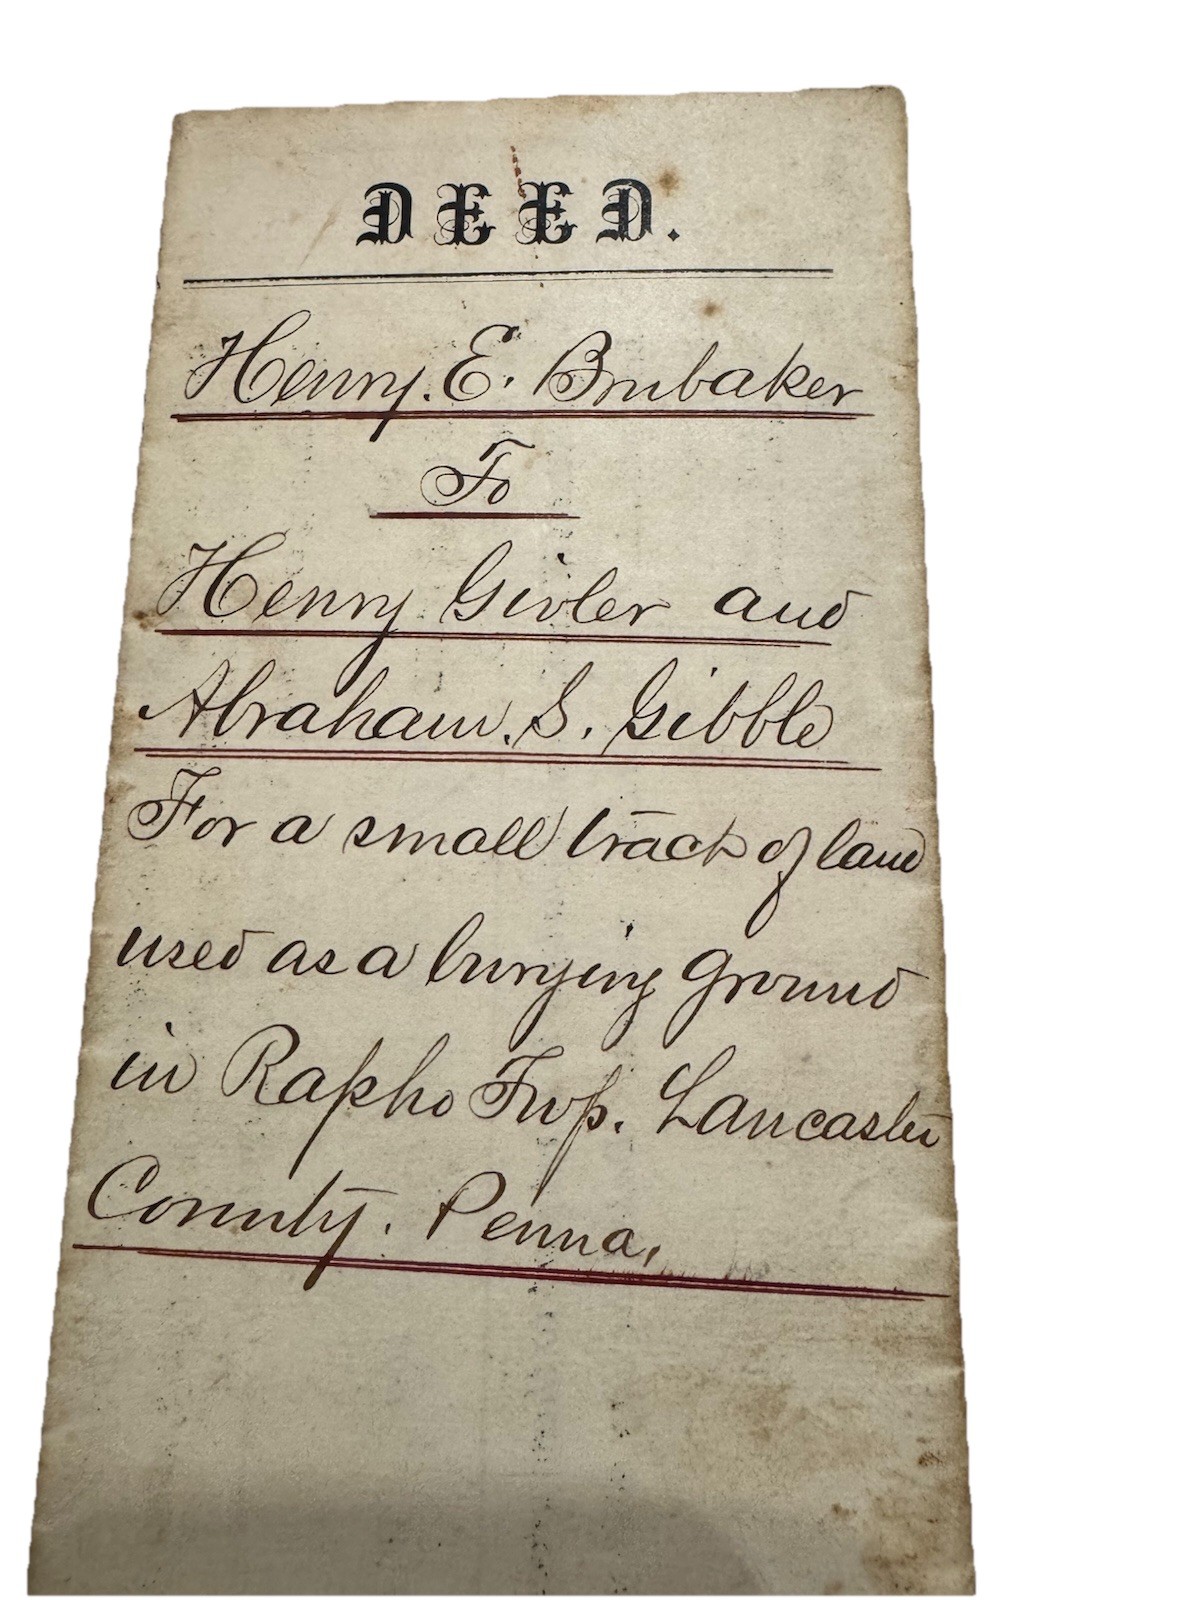 DEED.
Henry. E. Brubaker
To
Henry Givler and
Abraham. S. Gibble
For a small tract of land
used as a burying ground
in Rapho Twp. Lancaster
County. Penna.